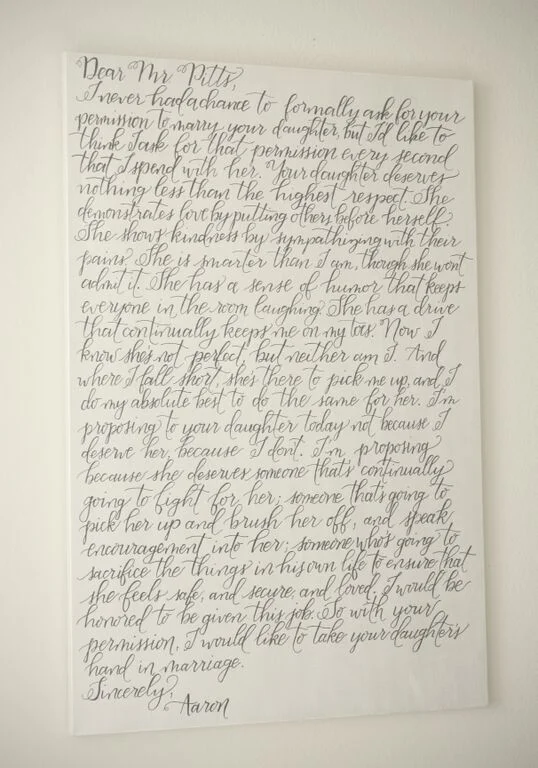 Dear Mr Pitts,
I never had a chance to formally ask for your
permission to marry your daughter, but I'd like to
think I ask for that permission every second
that I spend with her. Your daughter deserves
nothing less than the highest respect. She
demonstrates love by putting others before herself.
She shows kindness by sympathizing with their
pains. She is smarter than I am, though she won't
admit it. She has a sense of humor that keeps
everyone in the room laughing. She has a drive
that continually keeps me on my toes. Now I
know she's not perfect, but neither am I. And
where I fall short, she's there to pick me up, and I
do my absolute best to do the same for her. I'm
proposing to your daughter today not because I
deserve her, because I don't. I'm proposing
because she deserves someone that's continually
going to fight for her; someone that's going to
pick her up and brush her off, and speak
encouragement into her; someone who's going to
sacrifice the things in his own life to ensure that
she feels safe, and secure, and loved. I would be
honored to be given this job. So with your
permission, I would like to take your daughter's
hand in marriage.
Sincerely,
Aaron